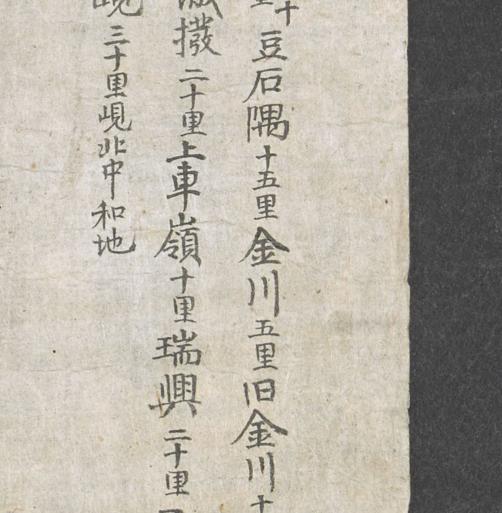 十豆石隅十五里金川五里旧金川十
撥二十里上車嶺十里瑞興二十里
峴三十里峴北中和地